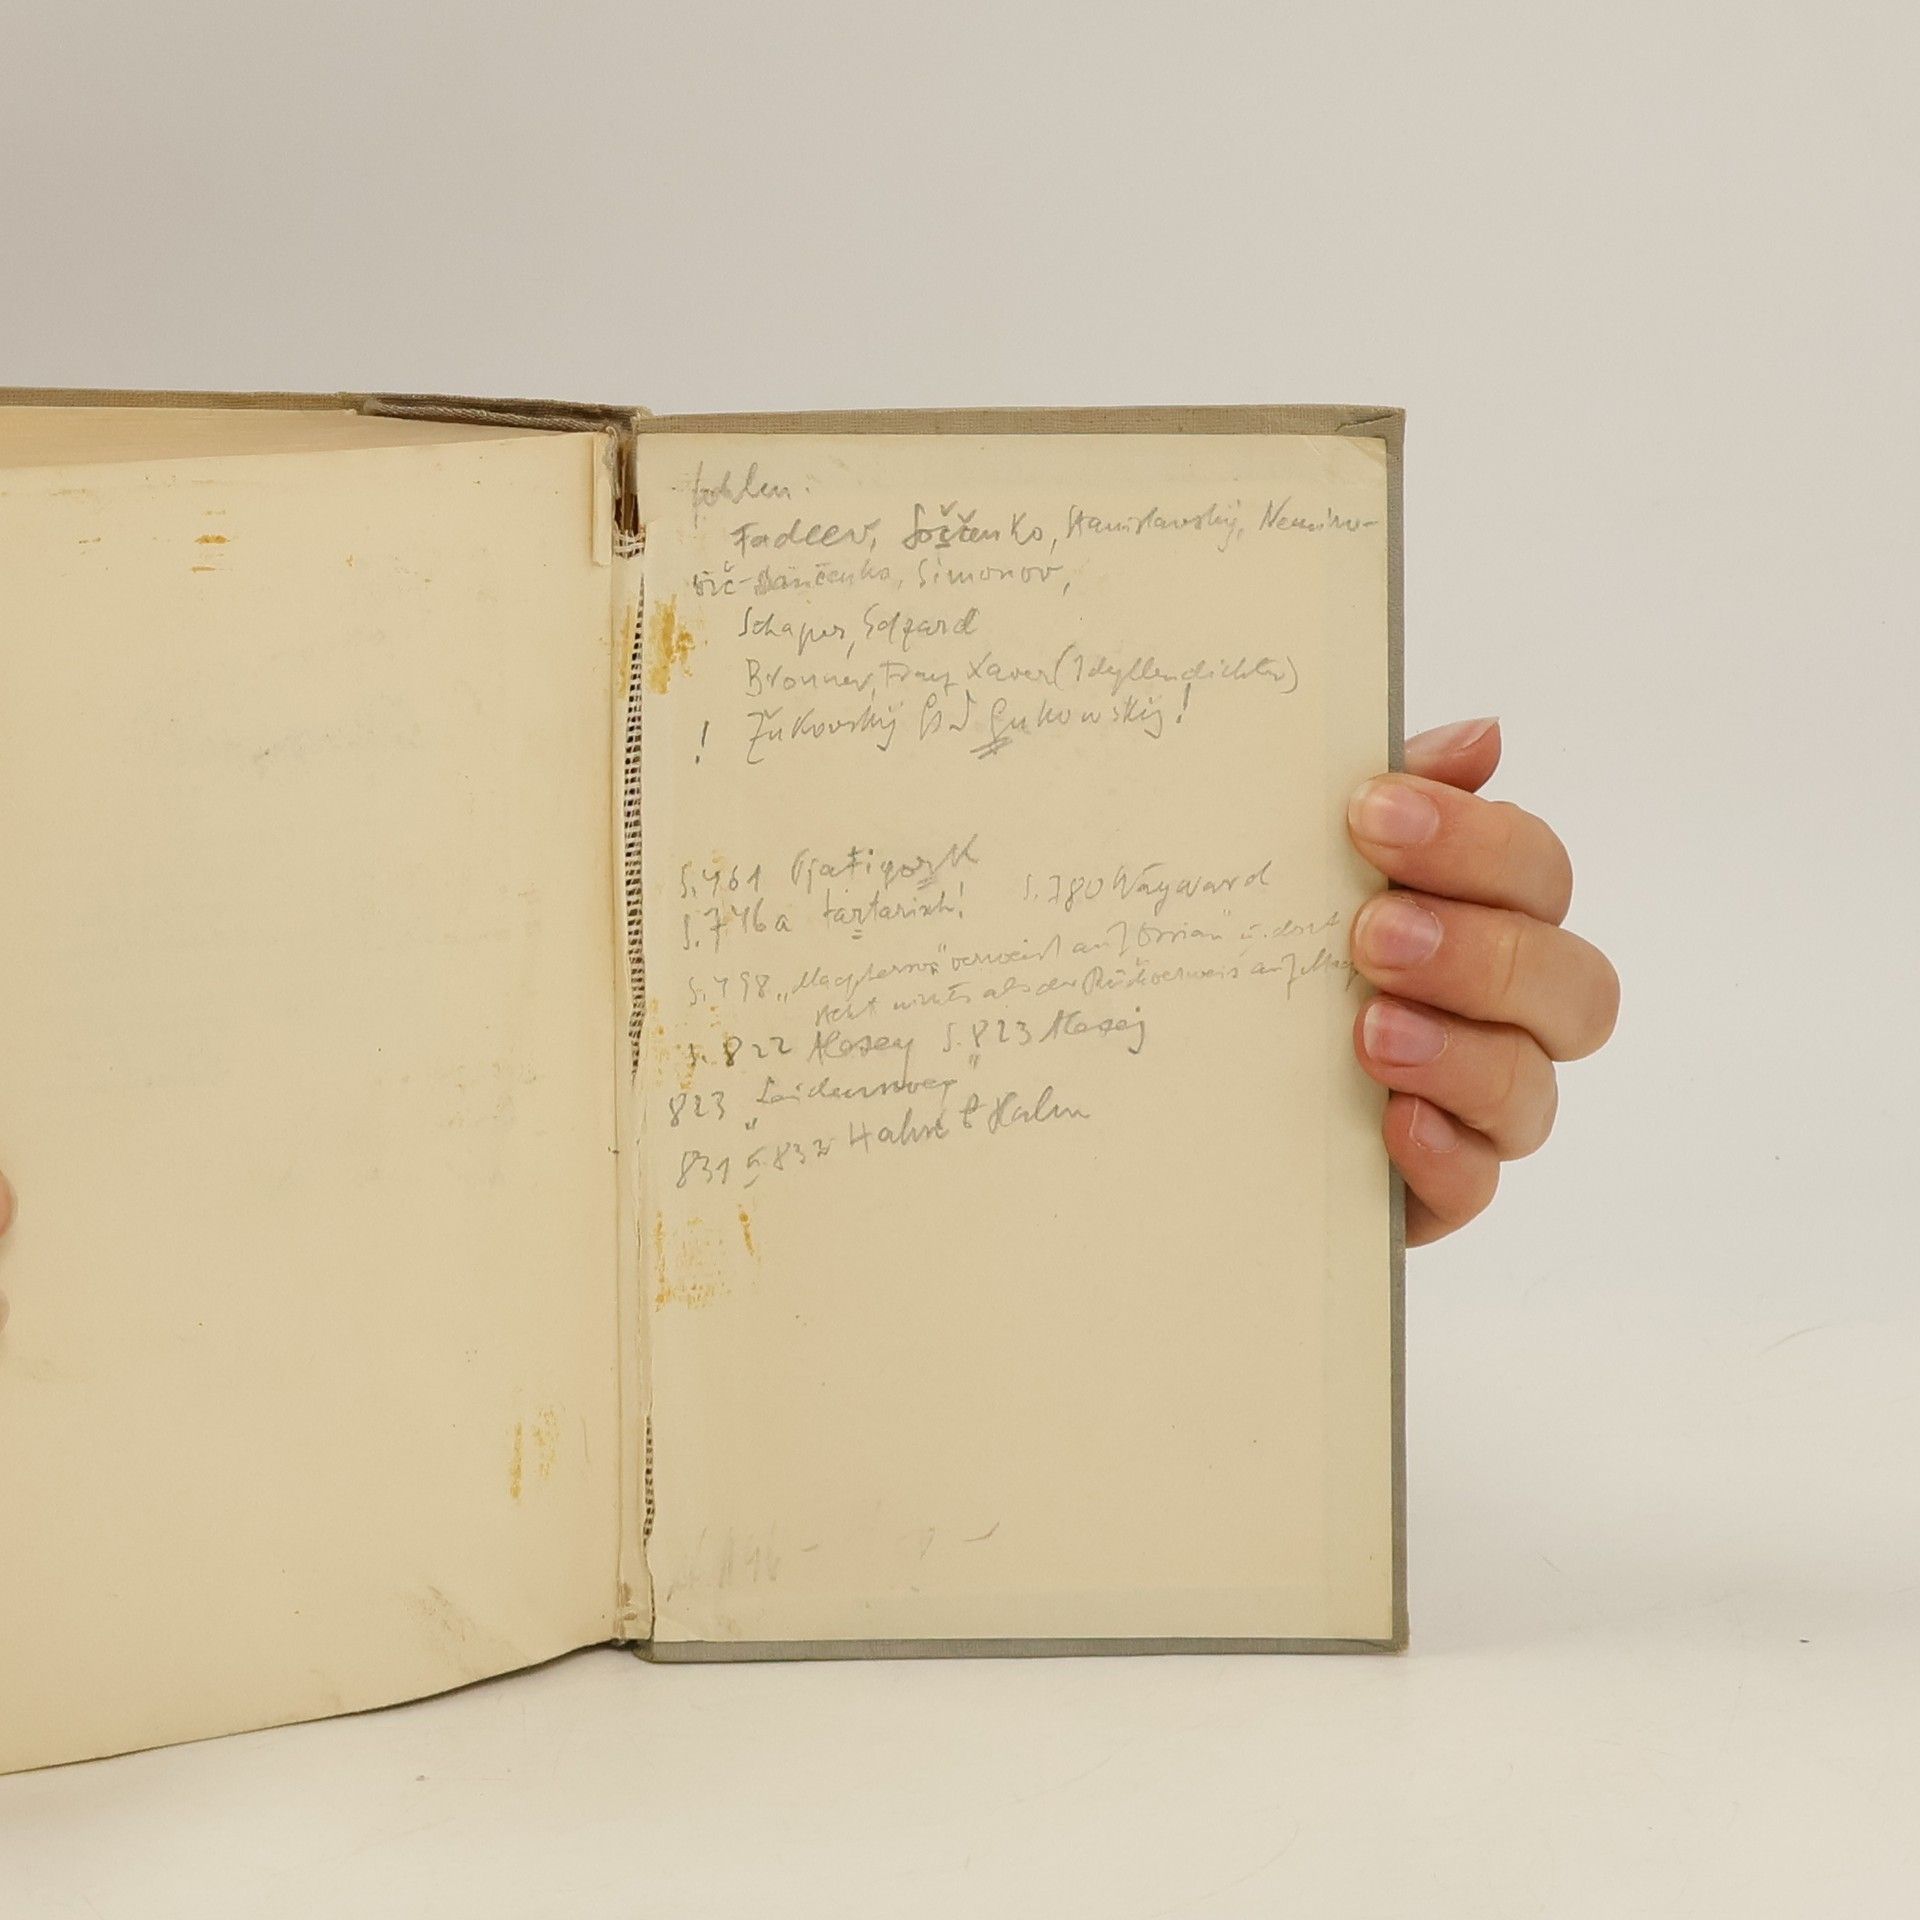 fehlen:
Fadeev, Soščenko, Stanislavskij, Nemiro-
vič-Dančenko, Simonov,
Schaper, Edzard
Bronner, Franz Xaver (Idyllendichter)
! Žukovskij Gukowskij!
S. 461 Pjatigorsk
S. 746a tartarisch! S. 780 Wayward
S. 798 „Macpherson“ verweist auf „Ossian“ u. dort
steht nichts als der Rückverweis auf Macp
S. 822 S. 823
823 „
831 u. 832 Hahn Halm